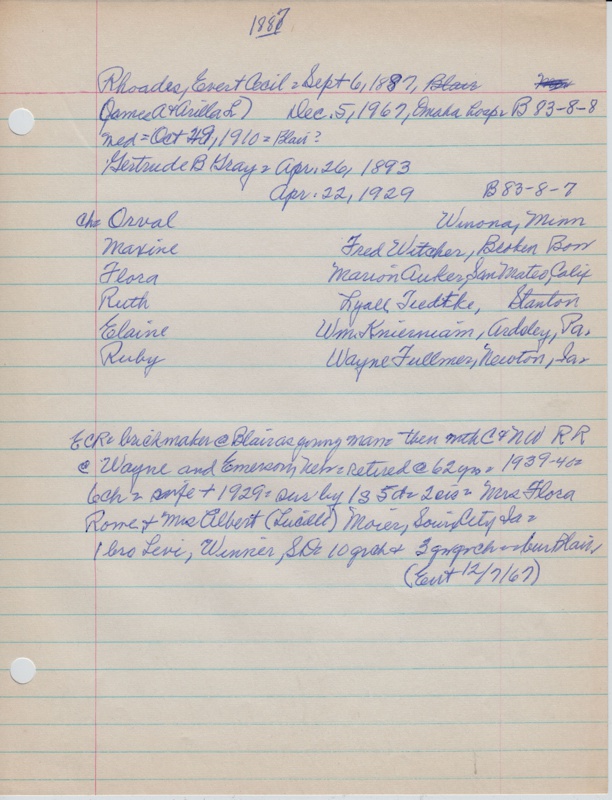 1887
Rhoades, Evert Cecil = Sept 6, 1887, Blair
(James A + Arilla L) Dec. 5, 1967, Omaha hosp = B 83-8-8
med = Oct 29, 1910 = Blair?
Gertrude B Gray = Apr. 26, 1893
Apr. 22, 1929 B83-8-7
ch = Orval Winona, Minn
Maxine Fred Witcher, Broken Bow
Flora Marion Auker, San Mateo, Calif
Ruth Lyall Tiedtke, Stanton
Elaine Wm. Knierniam, Ardsley, Pa.
Ruby Wayne Fullmer, Newton, Ia.
ECR = brickmaker @ Blair as young man = then with C + NW RR
@ Wayne and Emerson, Neb = retired @ 62 yrs = 1939-40 =
6 ch = wife + 1929 = sur by 1s 5d = 2 sis = Mrs Flora
Rome + Mrs Albert (Lucille) Moier, Sioux City Ia =
1 bro Levi, Winner, SD = 10 grch + 3 grgrch = bur Blair,
(Ent 12/7/67)